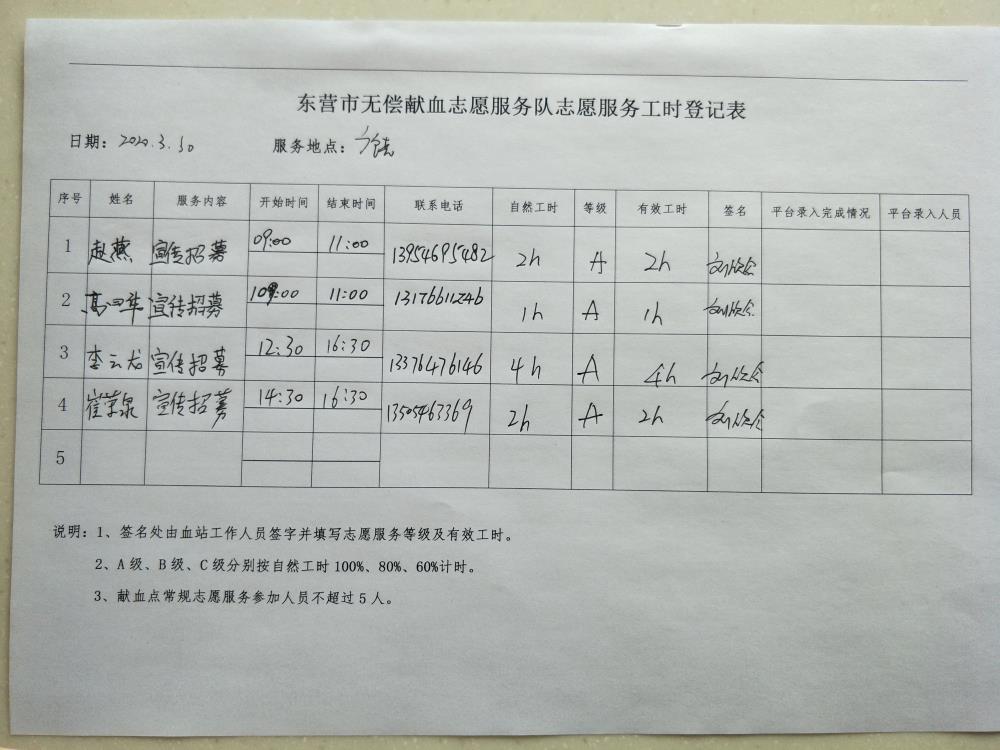 东营市无偿献血志愿服务队志愿服务工时登记表
日期：2020.3.30 服务地点：
序号 姓名 服务内容 开始时间 结束时间 联系电话 自然工时 等级 有效工时 签名 平台录入完成情况 平台录入人员
1 赵燕 宣传招募 09:00 11:00 13954695482 2h A 2h
2 高四华 宣传招募 10:00 11:00 13176611246 1h A 1h
3 李云龙 宣传招募 12:30 16:30 13376476146 4h A 4h
4 崔草泉 宣传招募 14:30 16:30 13505463369 2h A 2h
5
说明：1、签名处由血站工作人员签字并填写志愿服务等级及有效工时。
2、A 级、B 级、C 级分别按自然工时 100%、80%、60%计时。
3、献血点常规志愿服务参加人员不超过 5 人。